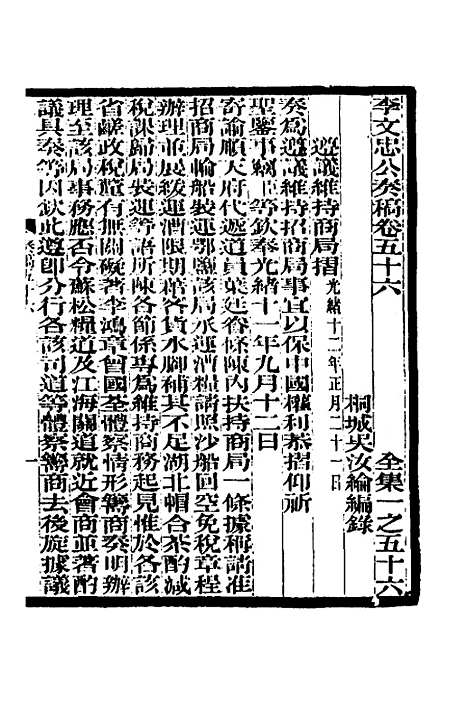 李文忠公奏稿卷五十六　全集一之五十六
桐城吳汝綸編錄
遵議維持商局摺光緒十二年正月二十一日
奏爲遵議維持招商局事宜以保中國權利恭摺仰祈
聖鑒事竊臣等欽奉光緒十一年九月十二日
寄諭順天府代遞道員葉廷眷條陳內扶持商局一條據稱請准
招商局輪船裝運鄂鹽該局承運漕糧請照沙船回空免稅章程
辦理並展緩運漕限期稽各貨水腳補其不足湖北帽合茶酌減
稅課歸局裝運等語所陳各節係專爲維持商務起見惟於各該
省鹾政稅釐有無關礙著李鴻章曾國荃體察情形籌商奏明辦
理至該局事務應否令蘇松糧道及江海關道就近會商並著酌
議具奏等因欽此遵卽分行各該司道等體察籌商去後旋據議